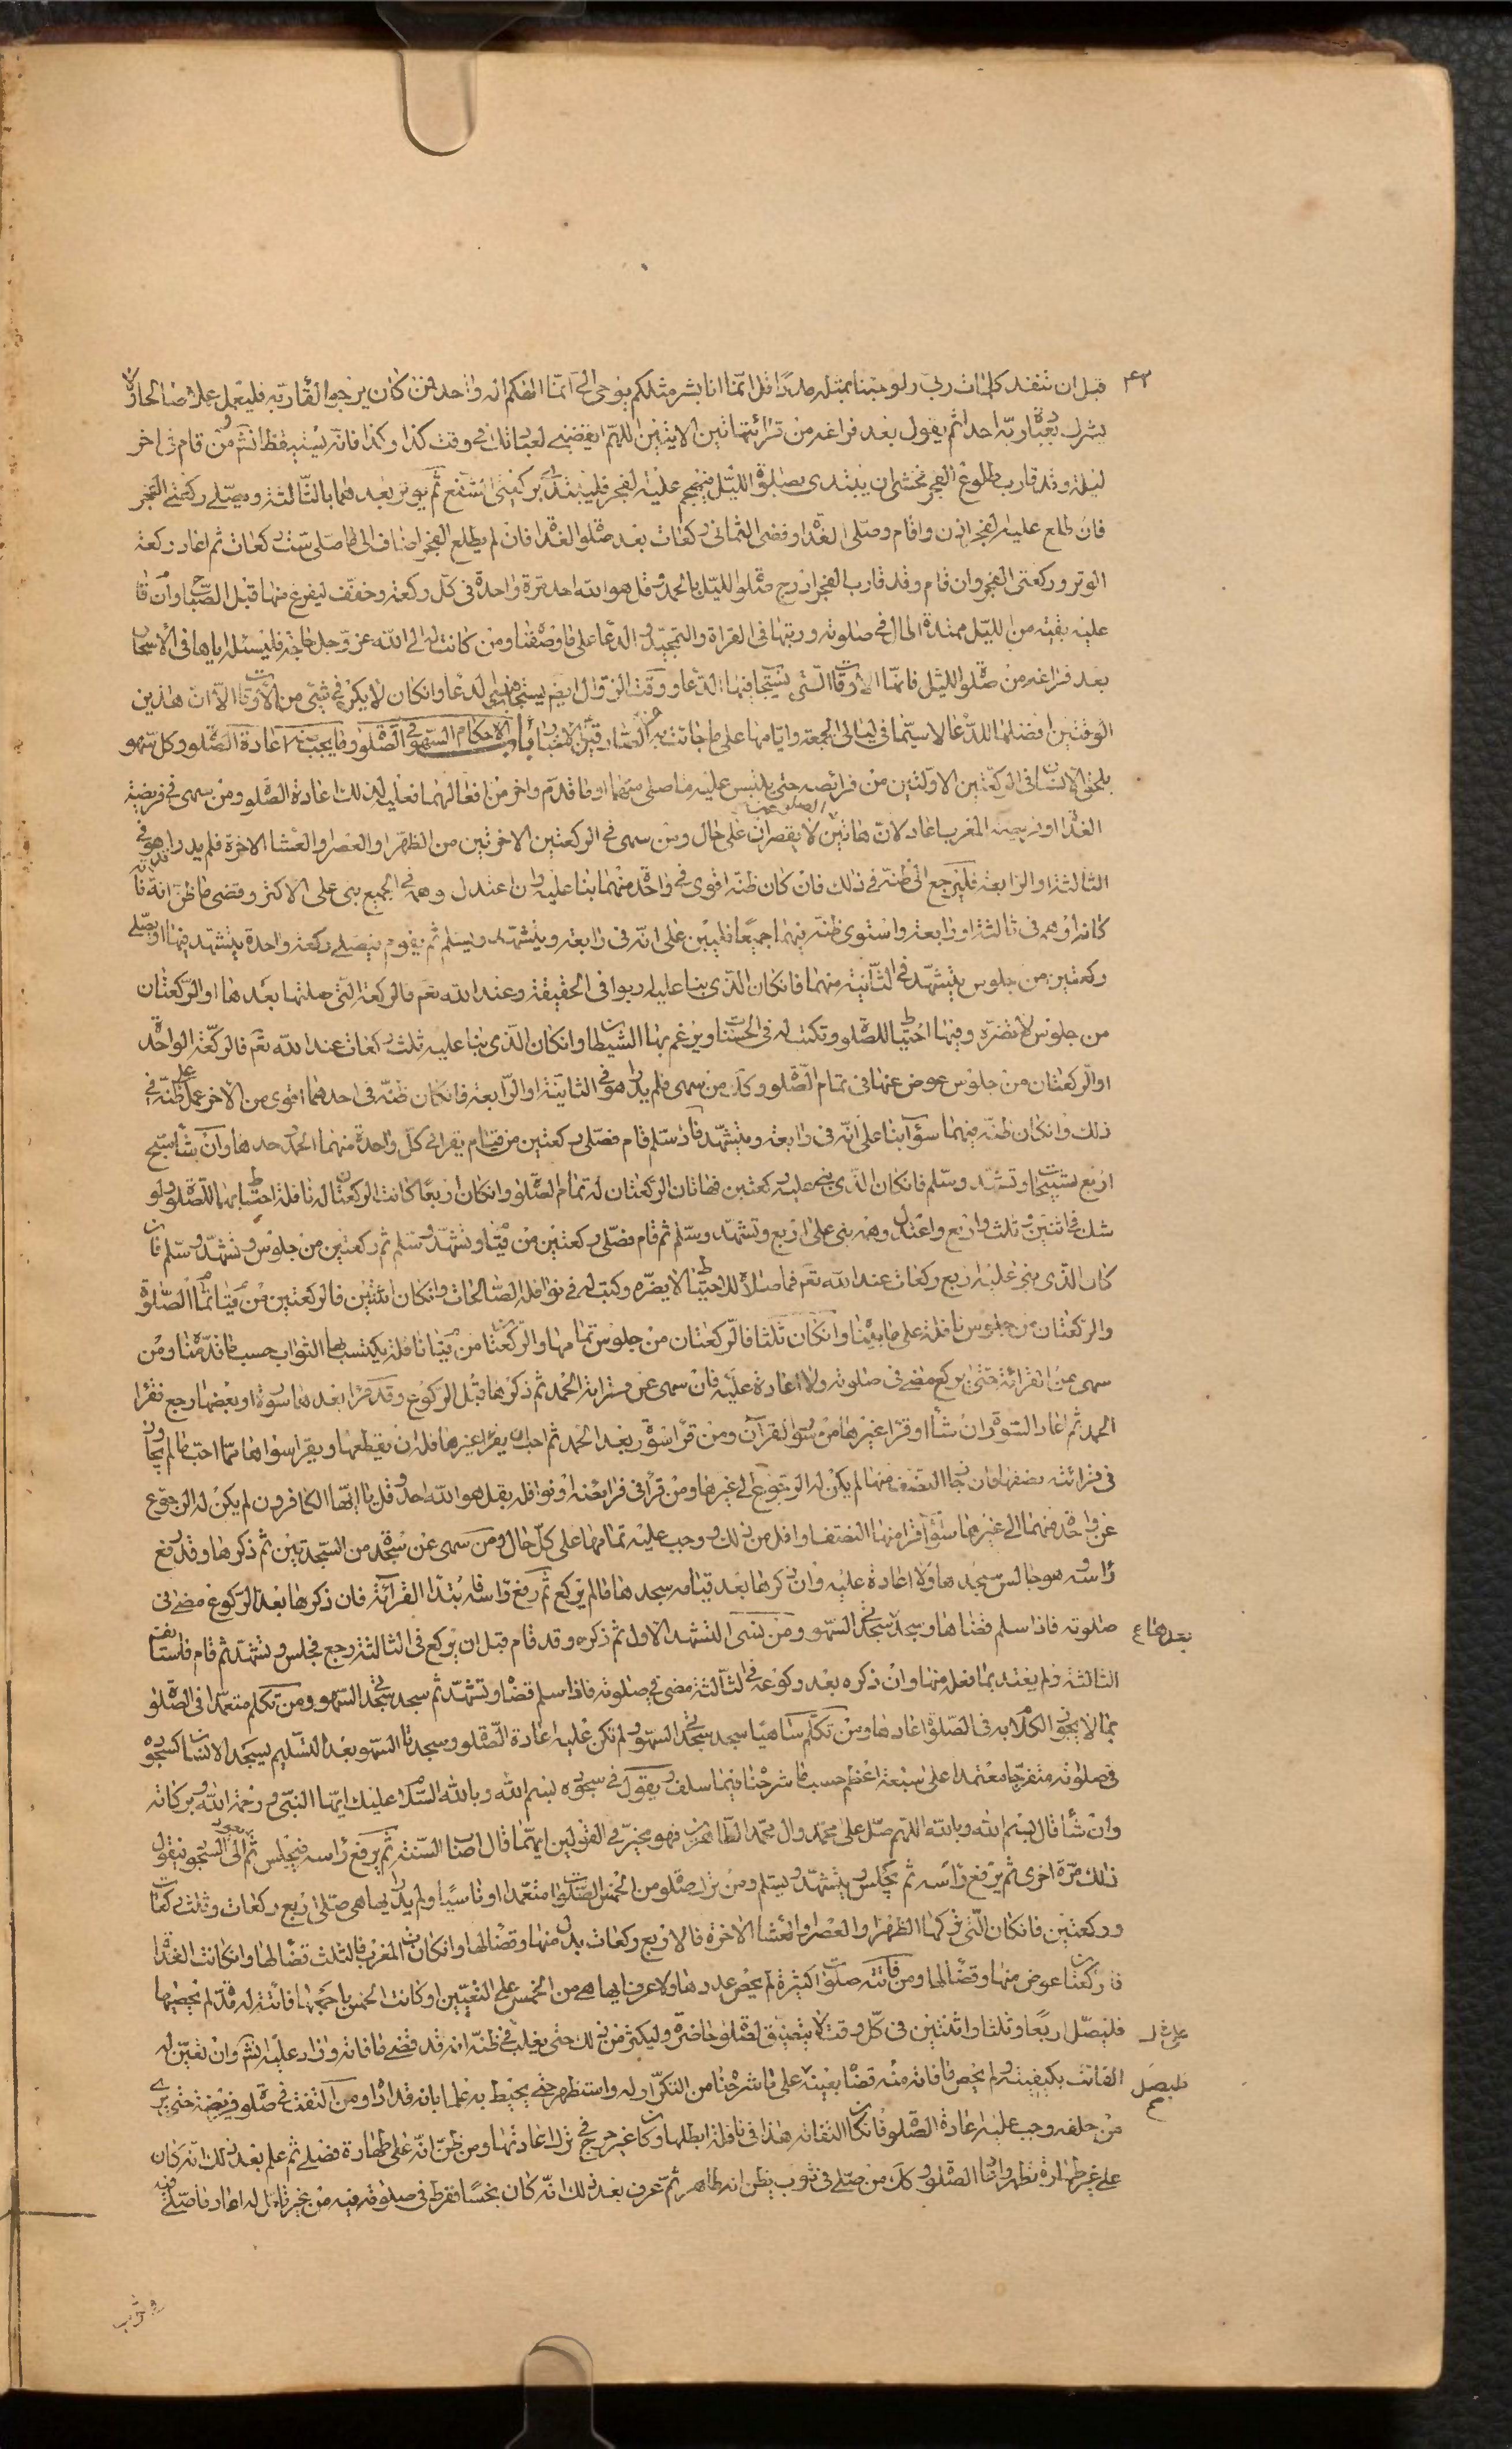 ٤٣
قبل ان تنفد كلمات ربى ولو جئنا بمثله مددا قل انما انا بشر مثلكم يوحى الى انما الهكم اله واحد فمن كان يرجوا لقاء ربه فليعمل عملا صالحا ولا
يشرك بعبادة ربه احدا ثم يقول بعد فراغه من قرائتها تين الايتين اللهم ايقضنى لعبادتك فى وقت كذا وكذا فانه يستيقظ انش ومن قام فى اخر
ليلة وقد قارب طلوع الفجر فخشى ان يبتدى بصلوة الليل فيهجم عليه الفجر فليبتدئ بركعتى الشفع ثم يوتر بعدهما بالثالثة ويصلى ركعتى الفجر
فان طلع عليه الفجر اذن واقام وصلى الغداة وقضى الثمانى ركعات بعد صلوة الغداة فان لم يطلع الفجر اضاف الى ما صلى ست ركعات ثم اعاد ركعة
الوتر وركعتى الفجر وان قام وقد قارب الفجر ادرج صلوة الليل بالحمد وقل هو الله احد مرة واحدة فى كل ركعة وخفف ليفرغ منها قبل الصباح وان قا
عليه بقية من الليل ممتدة اطال فى صلوته ورتبها فى القراة والتمجيد والدعا على ما وصفنا ومن كانت له الى الله عز وجل حاجة فليسئله اياها فى الاسحار
بعد فراغه من صلوة الليل فانها الاوقات التى يستجاب فيها الدعا ووقت الزوال ايضا يستجاب فيه الدعا وان كان لا يكره فى شئ من الاوقات الا ان هذين
الوقتين افضلها للدعا لا سيما فى ليالى الجمعة وايامها على ما جائت به عن الصادقين الاخبار باب الاحكام السهو فى الصلوة وما يجب منه اعادة الصلوة وكل سهو
يلحق الانسان فى الركعتين الاولتين من فرائضه حتى يلتبس عليه ما صلى منهما او ما قدم واخر من افعالهما فعليه لذلك اعادة الصلوة ومن سهى فى فريضة
الغداة او فريضة المغرب اعاد لان هاتين الصلوتين لا يقصران على حال ومن سهى فى الركعتين الاخرتين من الظهر او العصر او العشا الاخرة فلم يدر اهو فى
الثالثة او الرابعة فليرجع الى ظنه فى ذلك فان كان ظنه اقوى فى واحدة منهما بنا عليه وان اعتدل وهمه فى الجميع بنى على الاكثر وقضى ما ظن انه فا
كانه اوهم فى ثالثة او رابعة واستوى ظنه فيهما جميعا فليبن على انه فى رابعة ويتشهد ويسلم ثم يقوم فيصلى ركعة واحدة يتشهد فيها او يصلى
ركعتين من جلوس يتشهد فى الثانية منهما فان كان الذى بنا عليه اربعا فى الحقيقة وعند الله تعم فالركعة التى صلتها بعدها او الركعتان
من جلوس لا تضره وفيها احتياط للصلوة وتكتب له فى الحسنات ويرغم بها الشيطان وان كان الذى بنا عليه ثلث ركعات عند الله تعم فالركعة الواحدة
او الركعتان من جلوس عوض عنها فى تمام الصلوة وكذلك من سهى فلم يدر اهو فى الثانية او الرابعة فان كان ظنه فى احدهما اقوى من الاخر عمل على ظنه فى
ذلك وان كان ظنه فيهما سوآ بنا على انه فى رابعة ويتشهد فاذا سلم قام فصلى ركعتين من قيام يقرا فى كل واحدة منهما الحمد وحدها وان شا سبح
اربع تسبيحات وتشهد وسلم فان كان الذى بنى عليه ركعتين فهاتان الركعتان له تمام الصلوة وان كان اربعا كانت الركعتان له نافلة احتياطا بهما للصلوة ولو
شك فى اثنين وثلث واربع واعتدل وهمه بنى على اربع وتشهد وسلم ثم قام فصلى ركعتين من قيام وتشهد وسلم ثم ركعتين من جلوس وتشهد وسلم فان
كان الذى بنى عليه اربع ركعات عند الله تعم فما صلاه للاحتياط لا يضره وكتب له فى نوافله الصالحات وان كان اثنتين فالركعتين من قيام تمام الصلوة
والركعتان من جلوس نافلة على ما بيناه وان كان ثلثا فالركعتان من جلوس تمامها والركعتان من قيام نافلة يكتسب بها الثواب حسب ما قدمناه ومن
سهى عن القرائة حتى يركع مضى فى صلوته ولا اعادة عليه فان سهى عن قرائة الحمد ثم ذكرها قبل الركوع وقد قرا بعدها سورة او بعضها رجع فقرا
الحمد ثم اعاد السورة ان شا او قرا غيرها من سور القرآن ومن قرا سورة بعد الحمد ثم احب ان يقرا غيرها فله ان يقطعها ويقرا سواها مما احب ما لم يجاوز
فى قرائته نصفها فان جاز النصف منها لم يكن له الرجوع الى غيرها ومن قرا فى فرائضه او نوافله بقل هو الله احد وقل يا ايها الكافرون لم يكن له الرجوع
عن واحدة منهما الى غيرها سوآ قرا منها النصف او اقل من ذلك ووجب عليه تمامها على كل حال ومن سهى عن سجدة من السجدتين ثم ذكرها وقد رفع
راسه وهو جالس سجدها ولا اعادة عليه وان ذكرها بعد قيامه سجدها ما لم يركع ثم رفع راسه فابتدا القرآئة فان ذكرها بعد الركوع مضى فى
صلوته فاذا سلم قضاها وسجد سجدتى السهو ومن نسى التشهد الاول ثم ذكره وقد قام قبل ان يركع فى الثالثة رجع فجلس وتشهد ثم قام فاستانف
بعدها ع
الثالثة ولم يعتد بما فعله منها وان ذكره بعد ركوعه فى الثالثة مضى فى صلوته فاذا سلم قضاه وتشهد ثم سجد سجدتى السهو ومن تكلم متعمدا فى الصلوة
بما لا يجوز الكلام به فى الصلوة اعادها ومن تكلم ساهيا سجد سجدتى السهو ولم تكن عليه اعادة الصلوة وسجدتا السهو بعد التسليم يسجد الانسان كسجوده
فى صلوته متفرجا معتمدا على سبعة اعظم حسب ما شرحناه فيما سلف ويقول فى سجوده بسم الله وبالله السلام عليك ايها النبى ورحمة الله وبركاته
وان شا قال بسم الله وبالله اللهم صل على محمد وال محمد الطاهرين فهو مخير فى القولين ايهما قال اصاب السنة ثم يرفع راسه فيجلس ثم يعود الى السجود فيقول
ذلك مرة اخرى ثم يرفع راسه ثم يجلس ويتشهد ويسلم ومن ترك صلوة من الخمس الصلوات متعمدا او ناسيا ولم يدر ايها هى صلى اربع ركعات وثلث ركعات
وركعتين فان كان التى تركها الظهر او العصر او العشا الاخرة فالاربع ركعات بدل منها وقضا لها وان كانت المغرب فالثلث قضا لها وان كانت الغداة
فالركعتان عوض منها وقضا لها ومن فاتته صلوات كثيرة لم يحص عددها ولا عرف ايها هى من الخمس على التعيين او كانت الخمس باجمعها فائتة له مدة لم يحصيها
فليصل اربعا وثلثا واثنتين فى كل وقت لا يتضيق لصلوة حاضرة وليكثر من ذلك حتى يغلب فى ظنه انه قد قضى ما فاته وزاد عليه انش وان تعين له
الفائت بكيفيته ولم يحص ما فاته منه قضا بعينه على ما شرحنا من التكرار له واستظهر حتى يحيط به علما بانه قد اداه ومن التفت فى صلوة فريضة حتى يرى
فليصل
من خلفه وجب عليه اعادة الصلوة فان كان التفاته هذا فى نافلة ابطلها وكان غير حرج فى ترك اعادتها ومن ظن انه على طهارة فصلى ثم علم بعد ذلك انه كان
على غير طهارة تطهر واعاد الصلوة وكذلك من صلى فى ثوب يظن انه طاهر ثم عرف بعد ذلك انه كان نجسا ففرط فى صلوته فيه من غير تامل له اعاد ما صلى فيه
وثوب